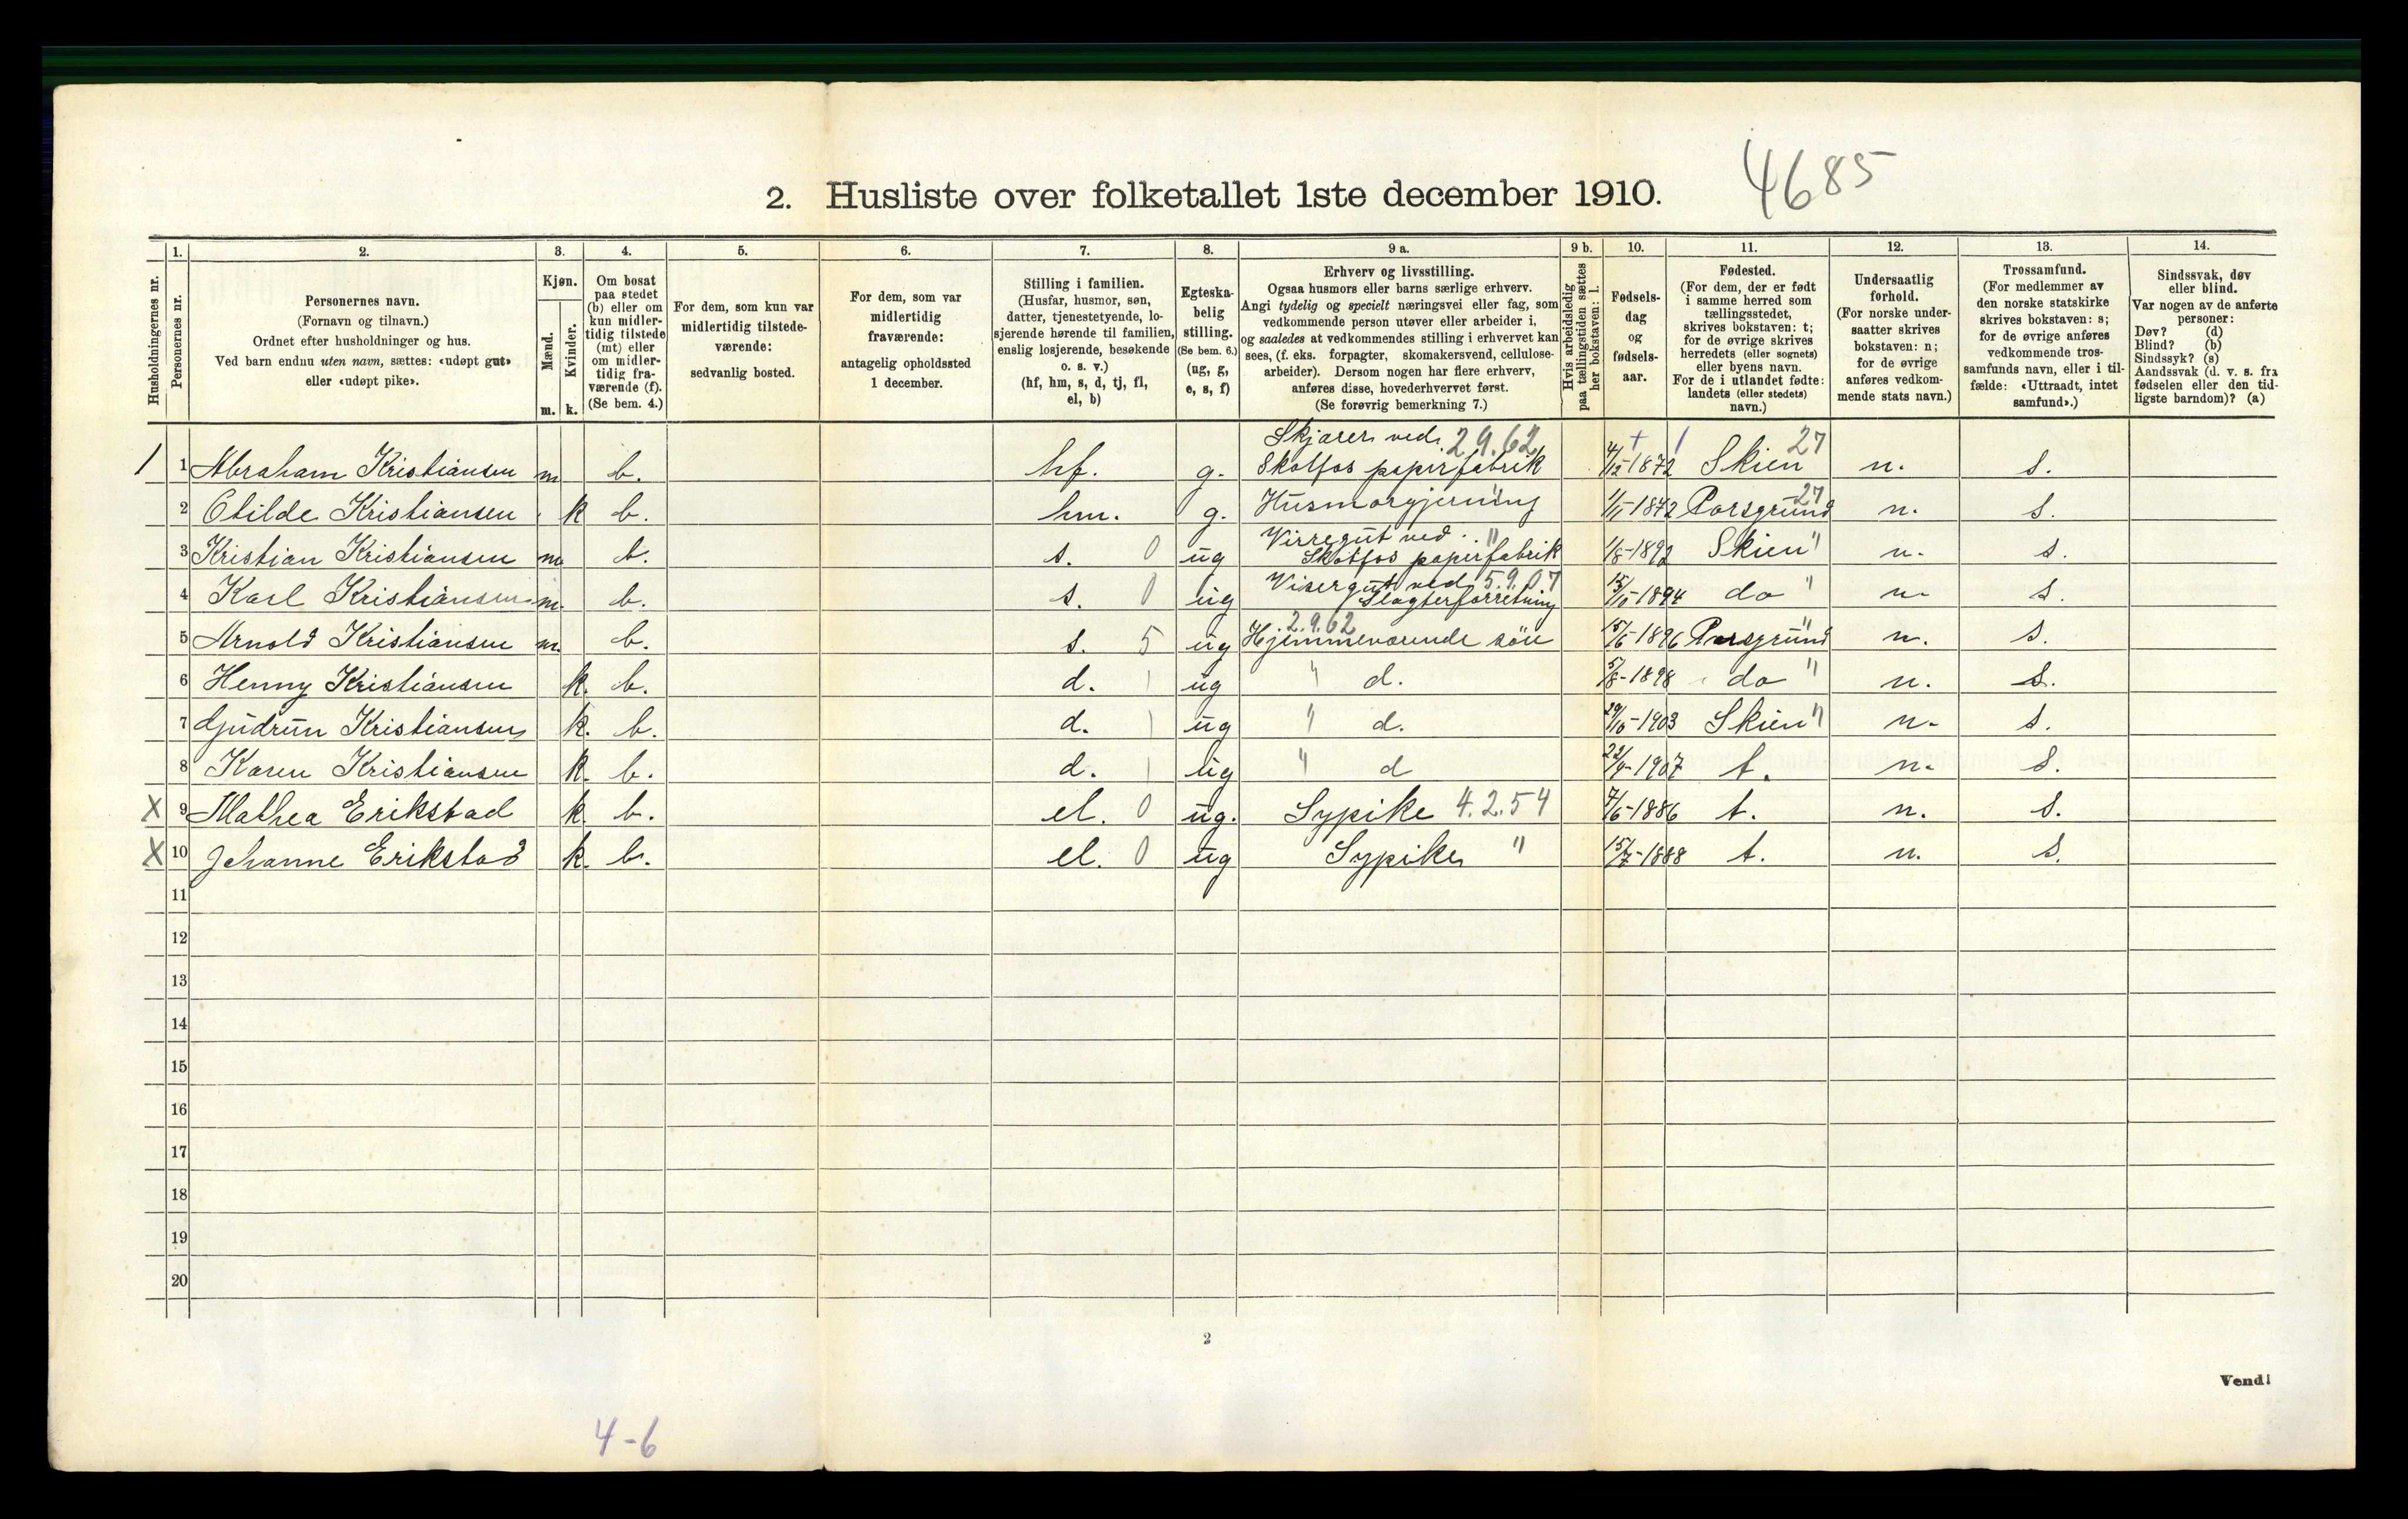 4685
2. Husliste over folketallet 1ste december 1910.
Husholdningernes nr.
1. Personernes nr.
2. Personernes navn. (Fornavn og tilnavn.) Ordnet efter husholdninger og hus. Ved barn endnu uten navn, sættes: «udøpt gut» eller «udøpt pike».
3. Kjøn. Mænd. m. Kvinder. k.
4. Om bosat paa stedet (b) eller om kun midlertidig tilstede (mt) eller om midlertidig fraværende (f). (Se bem. 4.)
5. For dem, som kun var midlertidig tilstedeværende: sedvanlig bosted.
6. For dem, som var midlertidig fraværende: antagelig opholdssted 1 december.
7. Stilling i familien. (Husfar, husmor, søn, datter, tjenestetyende, losjerende hørende til familien, enslig losjerende, besøkende o. s. v.) (hf, hm, s, d, tj, fl, el, b)
8. Egteskabelig stilling. (Se bem. 6.) (ug, g, e, s, f)
9 a. Erhverv og livsstilling. Ogsaa husmors eller barns særlige erhverv. Angi tydelig og specielt næringsvei eller fag, som vedkommende person utøver eller arbeider i, og saaledes at vedkommendes stilling i erhvervet kan sees, (f. eks. forpagter, skomakersvend, cellulosearbeider). Dersom nogen har flere erhverv, anføres disse, hovederhvervet først. (Se forøvrig bemerkning 7.)
9 b. Hvis arbeidsledig paa tællingstiden sættes her bokstaven: l.
10. Fødselsdag og fødselsaar.
11. Fødested. (For dem, der er født i samme herred som tællingsstedet, skrives bokstaven: t; for de øvrige skrives herredets (eller sognets) eller byens navn. For de i utlandet fødte: landets (eller stedets) navn.)
12. Undersaatlig forhold. (For norske undersaatter skrives bokstaven: n; for de øvrige anføres vedkommende stats navn.)
13. Trossamfund. (For medlemmer av den norske statskirke skrives bokstaven: s; for de øvrige anføres vedkommende trossamfunds navn, eller i tilfælde: «Uttraadt, intet samfund».)
14. Sindssvak, døv eller blind. Var nogen av de anførte personer: Døv? (d) Blind? (b) Sindssyk? (s) Aandssvak (d. v. s. fra fødselen eller den tidligste barndom)? (a)
1 1 Abraham Kristiansen m b. hf. g. Skjærer ved 29.62 Skotfos papirfabrik 4/12-1872 Skien 27 n. s.
2 Otilde Kristiansen k b. hm. g. Husmorgjerning 1/1-1872 Porsgrund 27 n. s.
3 Kristian Kristiansen m b. s. 0 ug Virregut ved " Skotfos papirfabrik 1/8-1892 Skien " n. s.
4 Karl Kristiansen m. b. s. 0 ug Visergut ved 5.9.07 Slagterforretning 15/10-1894 do " n. s.
5 Arnold Kristiansen m. b. s. 5 ug 2.9.62 Hjemmeværende søn 15/6-1896 Porsgrund " n. s.
6 Henny Kristiansen k. b. d. 1 ug " d. 5/8-1898 do " n. s.
7 Gudrun Kristiansen k. b. d. 1 ug " d. 29/10-1903 Skien " n. s.
8 Karen Kristiansen k. b. d. 1 ug " d 22/9-1907 t. n. s.
X 9 Mathea Erikstad k. b. el. 0 ug. Sypike 4.2.54 7/6-1886 t. n. s.
X 10 Johanne Erikstad k. b. el. 0 ug Sypike " 15/7-1888 t. n. s.
11
12
13
14
15
16
17
18
19
20
2
Vend!
4-6